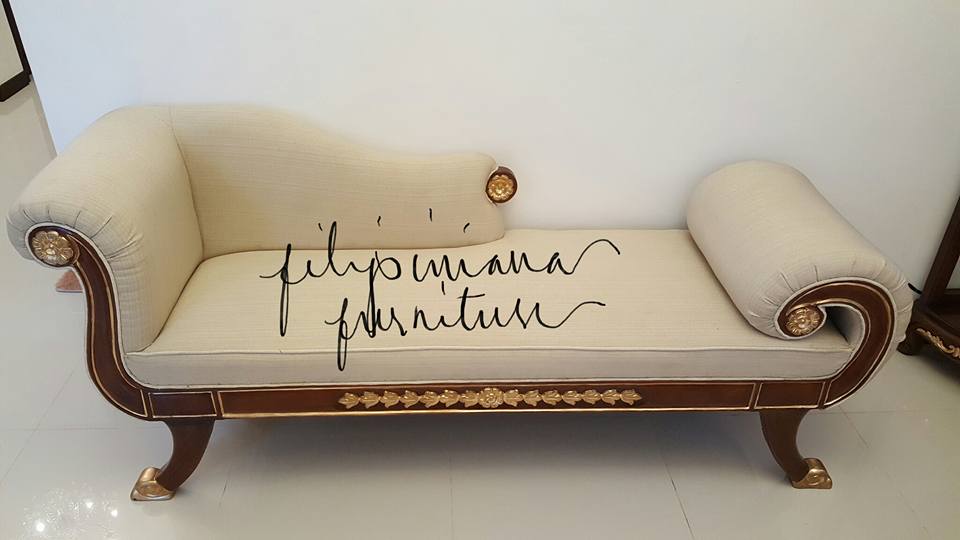 filipiniana
furniture